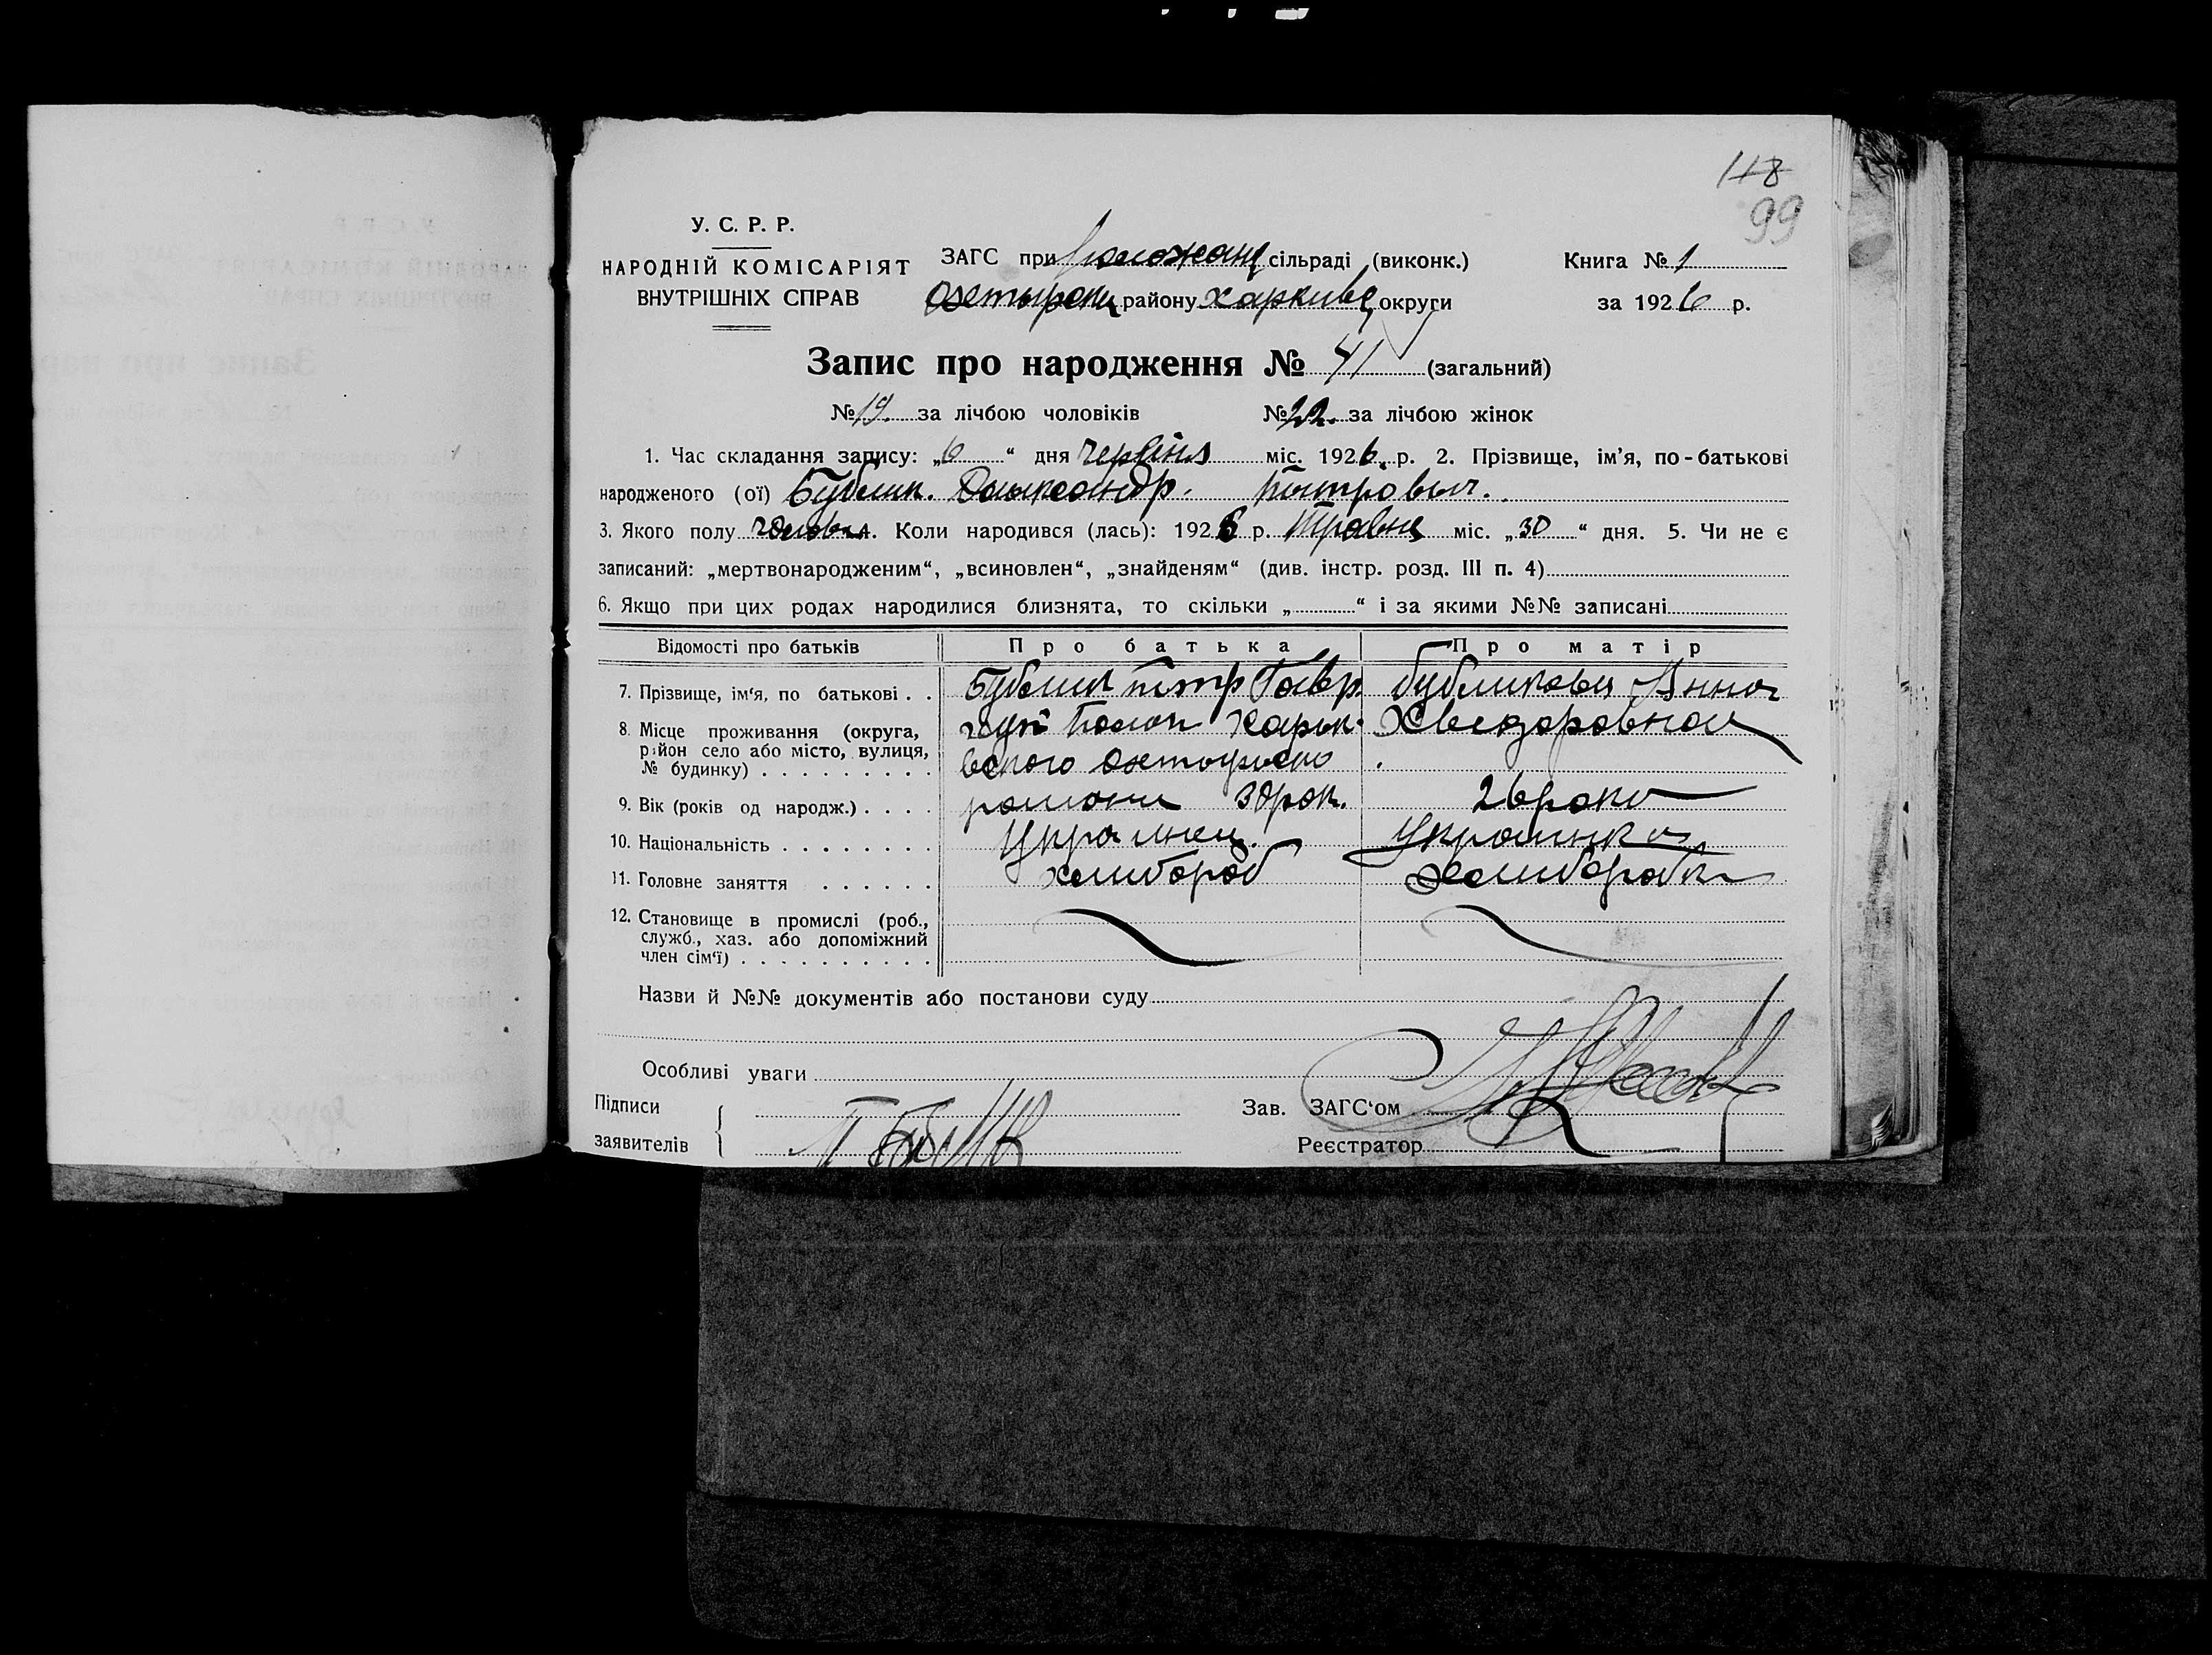 118
99
У. С. Р. Р.
НАРОДНІЙ КОМІСАРІЯТ
ВНУТРІШНІХ СПРАВ
ЗАГС при сільраді (виконк.)
району округи
Книга № 1
за 1926 р.
Запис про народження № 41 (загальний)
№ 19 за лічбою чоловіків № 22. за лічбою жінок
1. Час складання запису: „6“ дня червіня міс. 1926. р. 2. Прізвище, ім’я, по-батькові
народженого (ої) Бублик. петрович.
3. Якого полу 4. Коли народився (лась): 1926 р. Травня міс. „30“ дня. 5. Чи не є
записаний: „мертвонародженим“, „всиновлен“, „знайденям“ (див. інстр. розд. III п. 4)
6. Якщо при цих родах народилися близнята, то скільки „ “ і за якими №№ записані
Відомості про батьків Про батька Про матір
7. Прізвище, ім‘я, по батькові . . Бублик петр Гавр. Бубликова Анна
8. Місце проживання (округа, район село або місто, вулиця, № будинку) . . . . . . . . . Хведоровна
9. Вік (років од народж.) . . . . 30рок. 26роки
10. Національність . . . . . . . . Украінец. Украинка
11. Головне заняття . . . . . . хлибороб хлиборобка
12. Становище в промислі (роб.,
служб., хаз. або допоміжний
член сім‘ї) . . . . . . . . . .
Назви й №№ документів або постанови суду
Особливі уваги
Підписи
заявителів
Зав. ЗАГС‘ом
Реєстратор